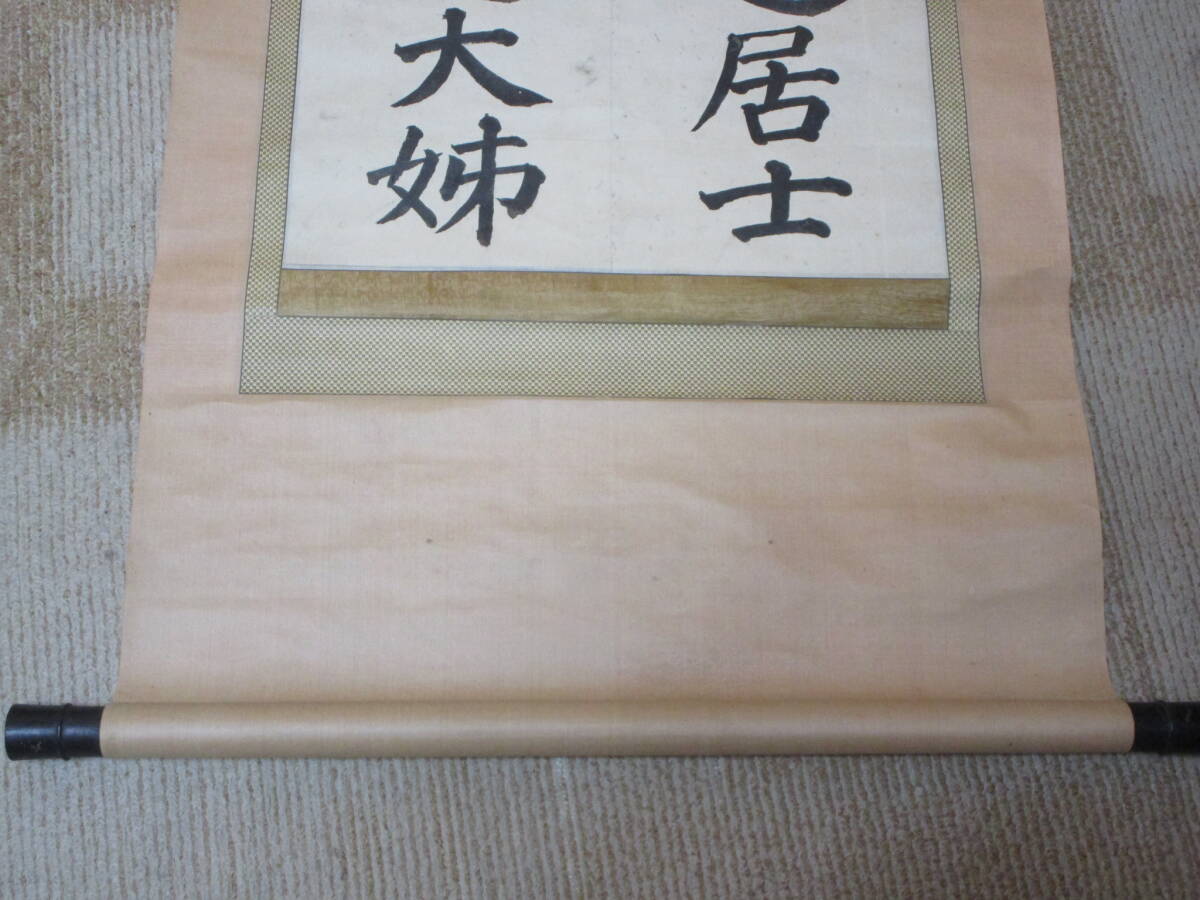 居士
大姉